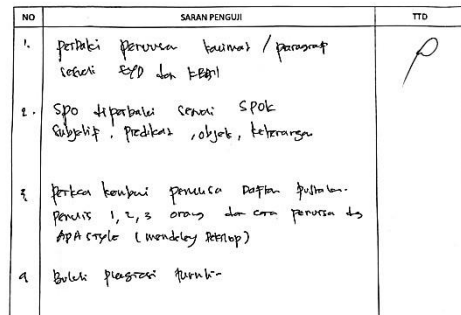 NO SARAN PENGUJI TTD
1. perbaki penulisan kalimat / paragrap
sesuai EYD dan KBBI
2. SPO diperbaiki sesuai SPOK
Subjektif, predikat, objek, keterangan
3 periksa kembali penulisan Daftar pustaka.
penulis 1, 2, 3 orang dan cara penulisan dg
APA style (mendeley
4 Bukti plagiasi turnitin